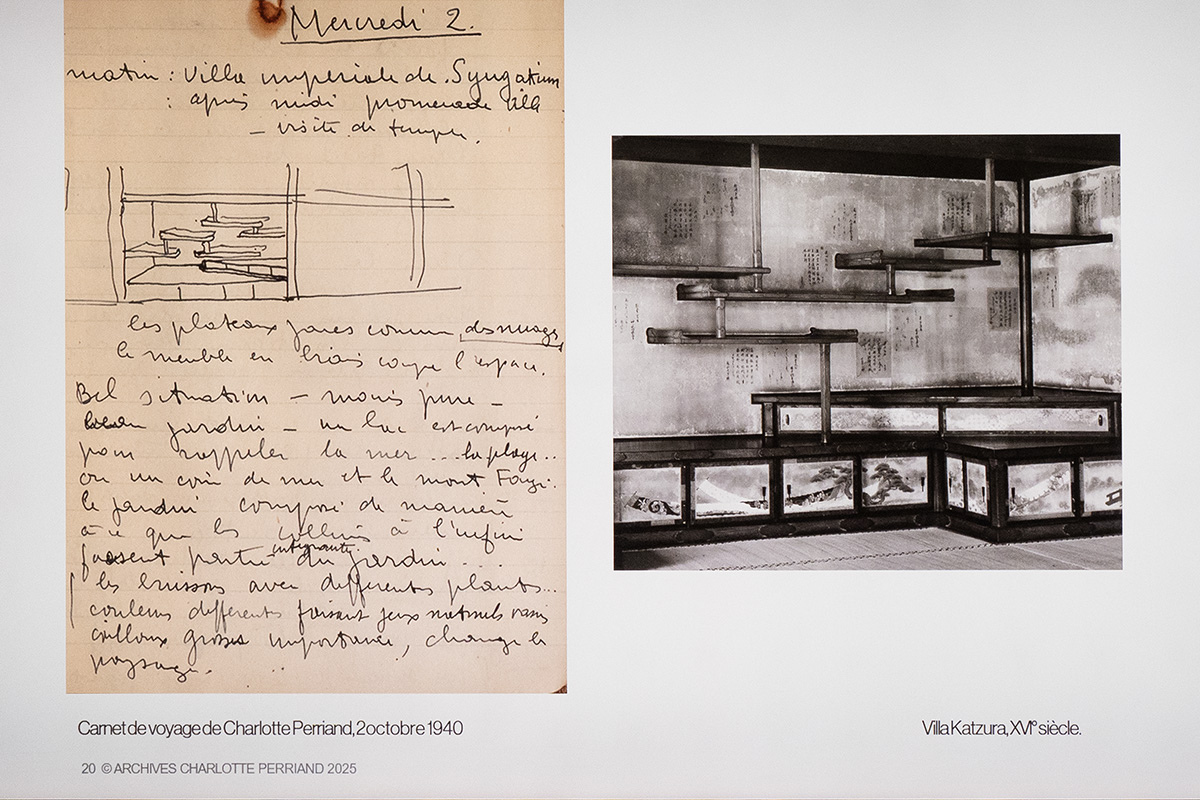 Mercredi 2.
matin : Villa impériale de Syugakuin
: après midi promenade ville
– visite de temple.
les plateaux posés comme des nuages
le meuble en biais coupe l'espace.
Bel situation – mais pure –
jardin – un lac est composé
pour rappeler la mer ... la plage ..
ou un coin de mer et le mont Fouji.
le jardin composé de manière
à ce que les collines à l'infini
fassent partie intégrante du jardin ...
les buissons avec différents plants ...
couleurs différents faisant jeux naturels
cailloux grosse importance, change le
paysage.
Carnet de voyage de Charlotte Perriand, 2 octobre 1940
Villa Katzura, XVIº siècle.
20 © ARCHIVES CHARLOTTE PERRIAND 2025